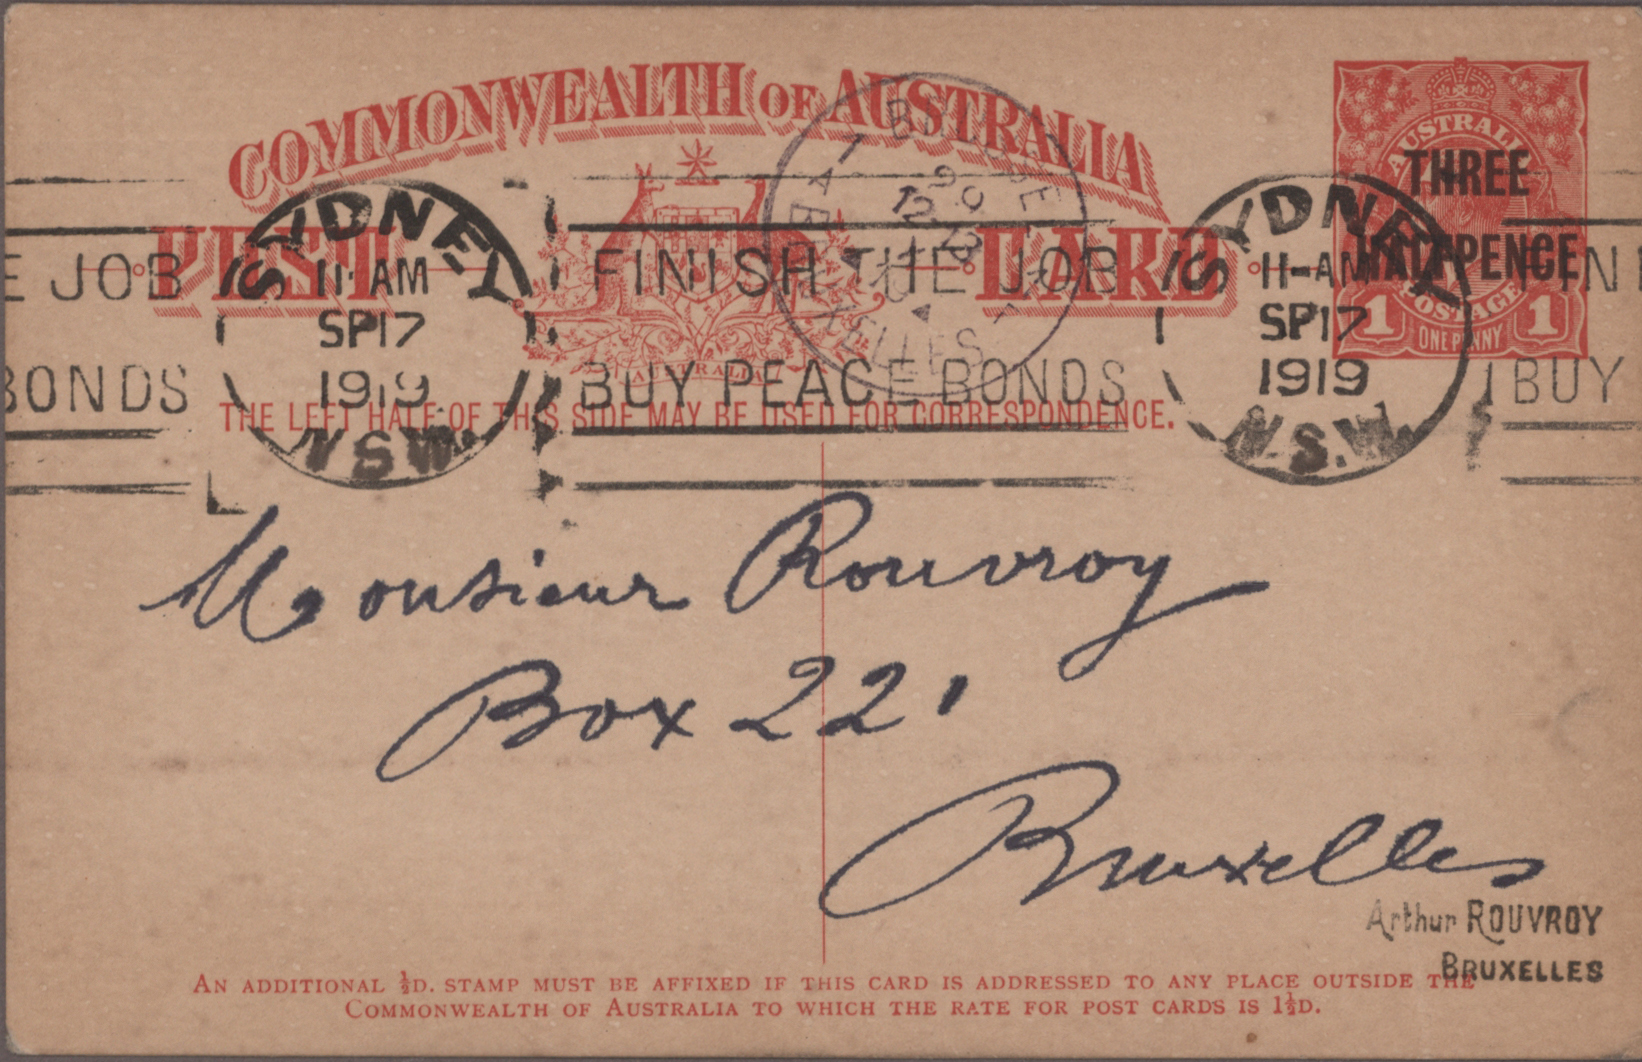 COMMONWEALTH OF AUSTRALIA
POST CARD
AUSTRALIA
THE LEFT HALF OF THIS SIDE MAY BE USED FOR CORRESPONDENCE.
AUSTRALIA
THREE
HALFPENCE
POSTAGE
1 ONE PENNY 1
E JOB
BONDS
SYDNEY
11-AM
SP17
1919
N.S.W.
FINISH THE JOB
BUY PEACE BONDS
SYDNEY
11-AM
SP17
1919
N.S.W.
FIN
BUY
Monsieur Rouvroy
Box 221
Bruxelles
Arthur ROUVROY
BRUXELLES
AN ADDITIONAL ½D. STAMP MUST BE AFFIXED IF THIS CARD IS ADDRESSED TO ANY PLACE OUTSIDE THE
COMMONWEALTH OF AUSTRALIA TO WHICH THE RATE FOR POST CARDS IS 1½D.